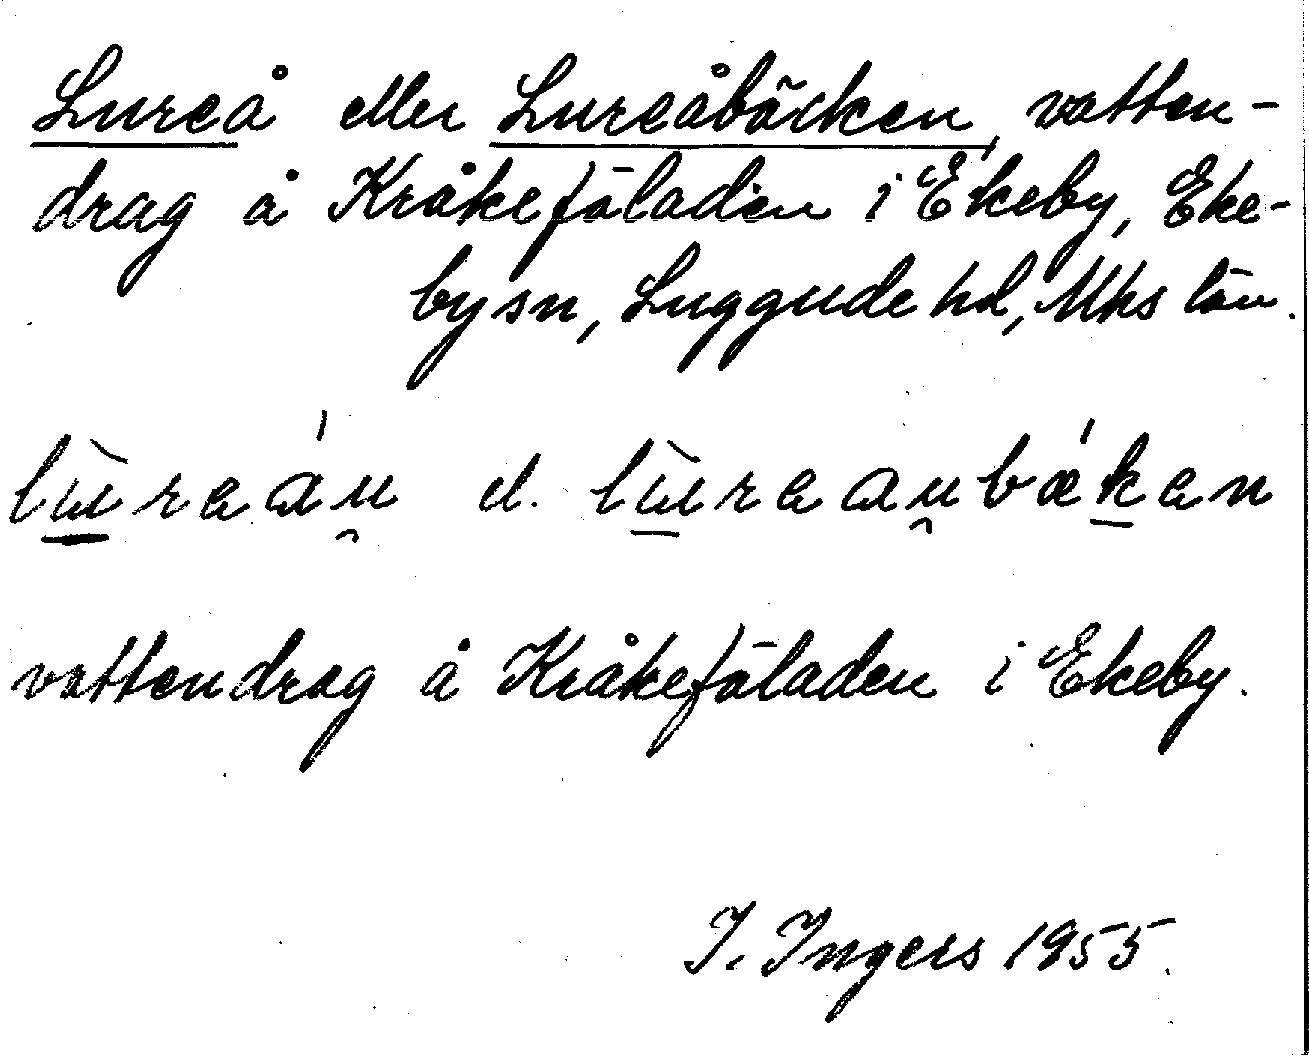 Lureå eller Lureåbäcken, vatten-
drag å Kråkefäladen i Ekeby, Eke-
by sn, Luggude hd, Mhs län.
lùreáu el. lùreaubǽken
vattendrag å Kråkefäladen i Ekeby.
I. Ingers 1955.